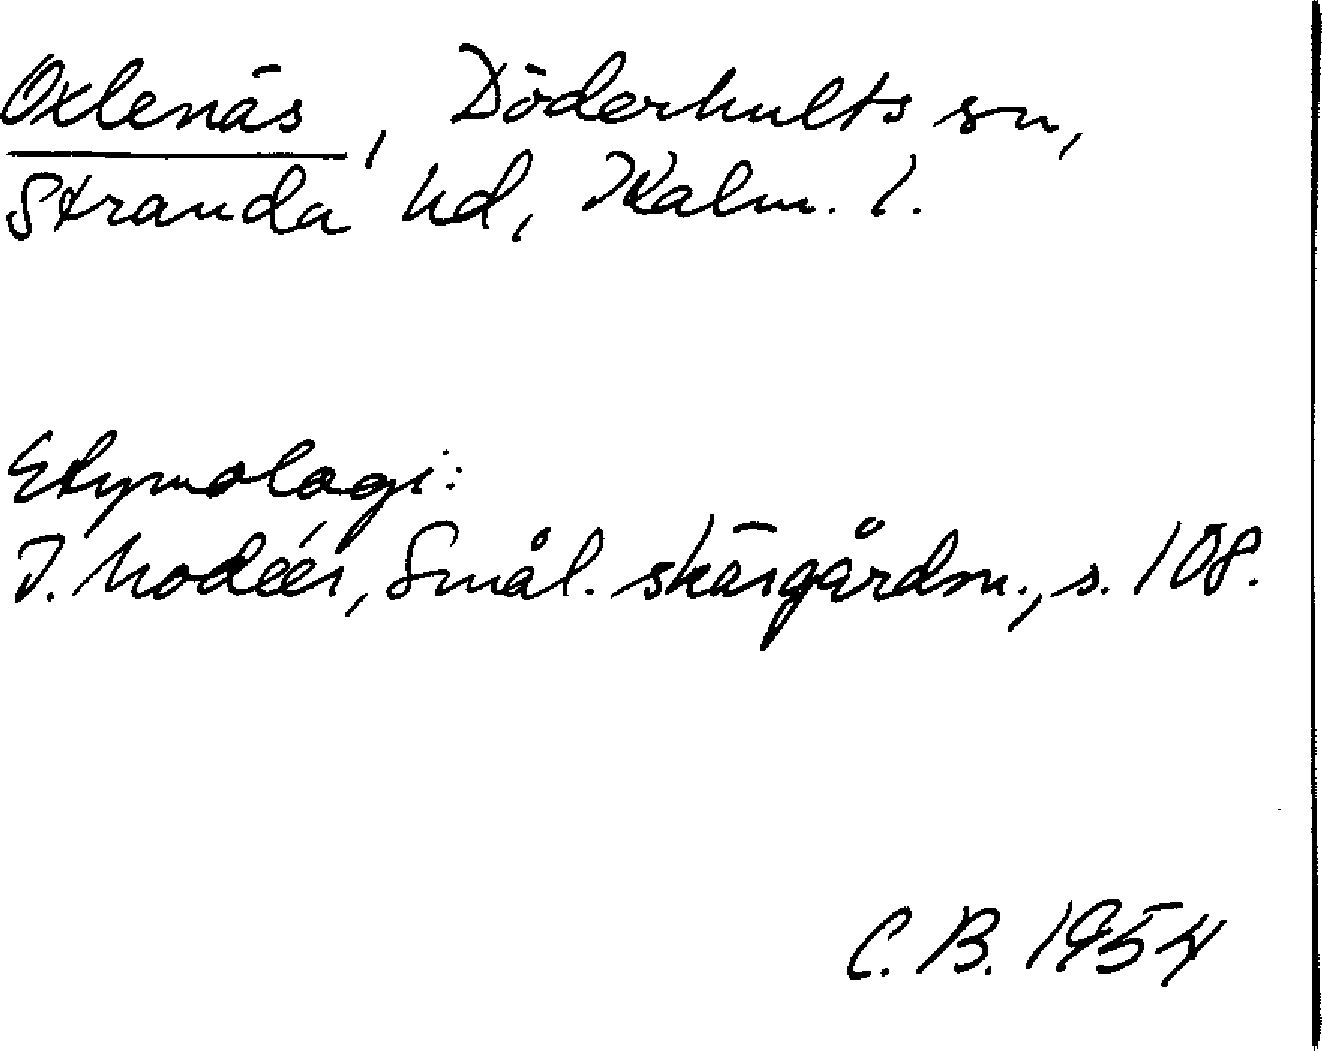 Oxlenäs, Döderhults sn,
Stranda hd, Kalm. l.
Etymologi:
I. Modéer, Smål. skärgårdsn., s. 108.
C. B. 1954